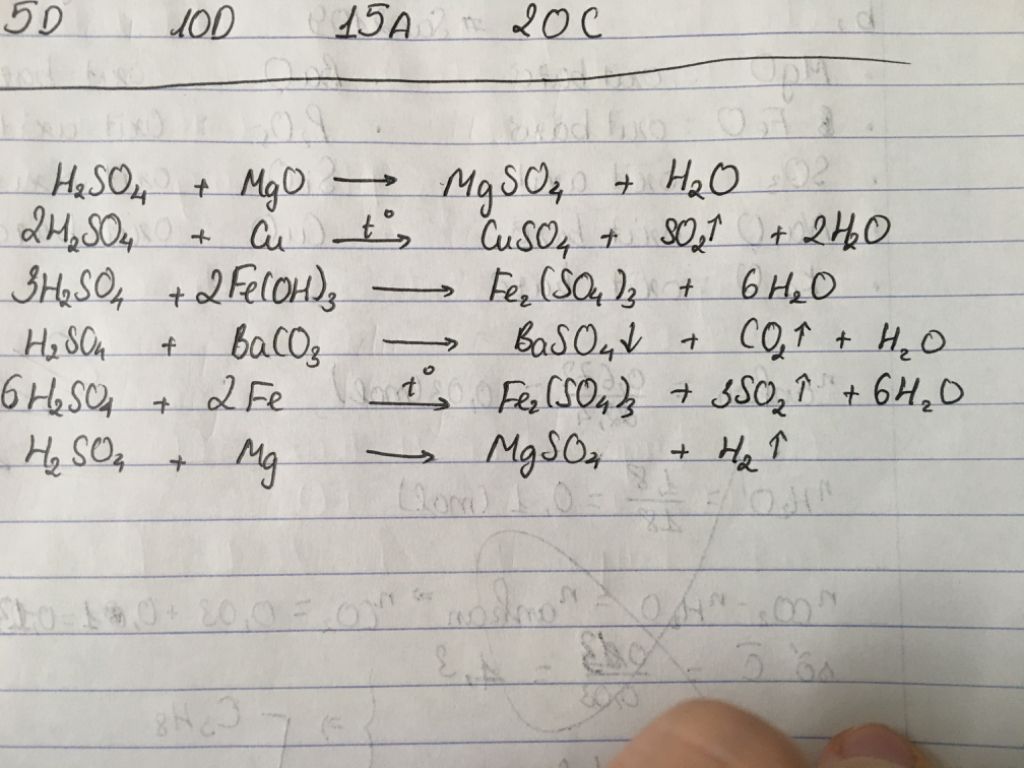 5D 10D 15A 20C
H₂SO₄ + MgO → MgSO₄ + H₂O
2H₂SO₄ + Cu —t°→ CuSO₄ + SO₂↑ + 2H₂O
3H₂SO₄ + 2Fe(OH)₃ → Fe₂(SO₄)₃ + 6H₂O
H₂SO₄ + BaCO₃ → BaSO₄↓ + CO₂↑ + H₂O
6H₂SO₄ + 2Fe —t°→ Fe₂(SO₄)₃ + 3SO₂↑ + 6H₂O
H₂SO₄ + Mg → MgSO₄ + H₂↑